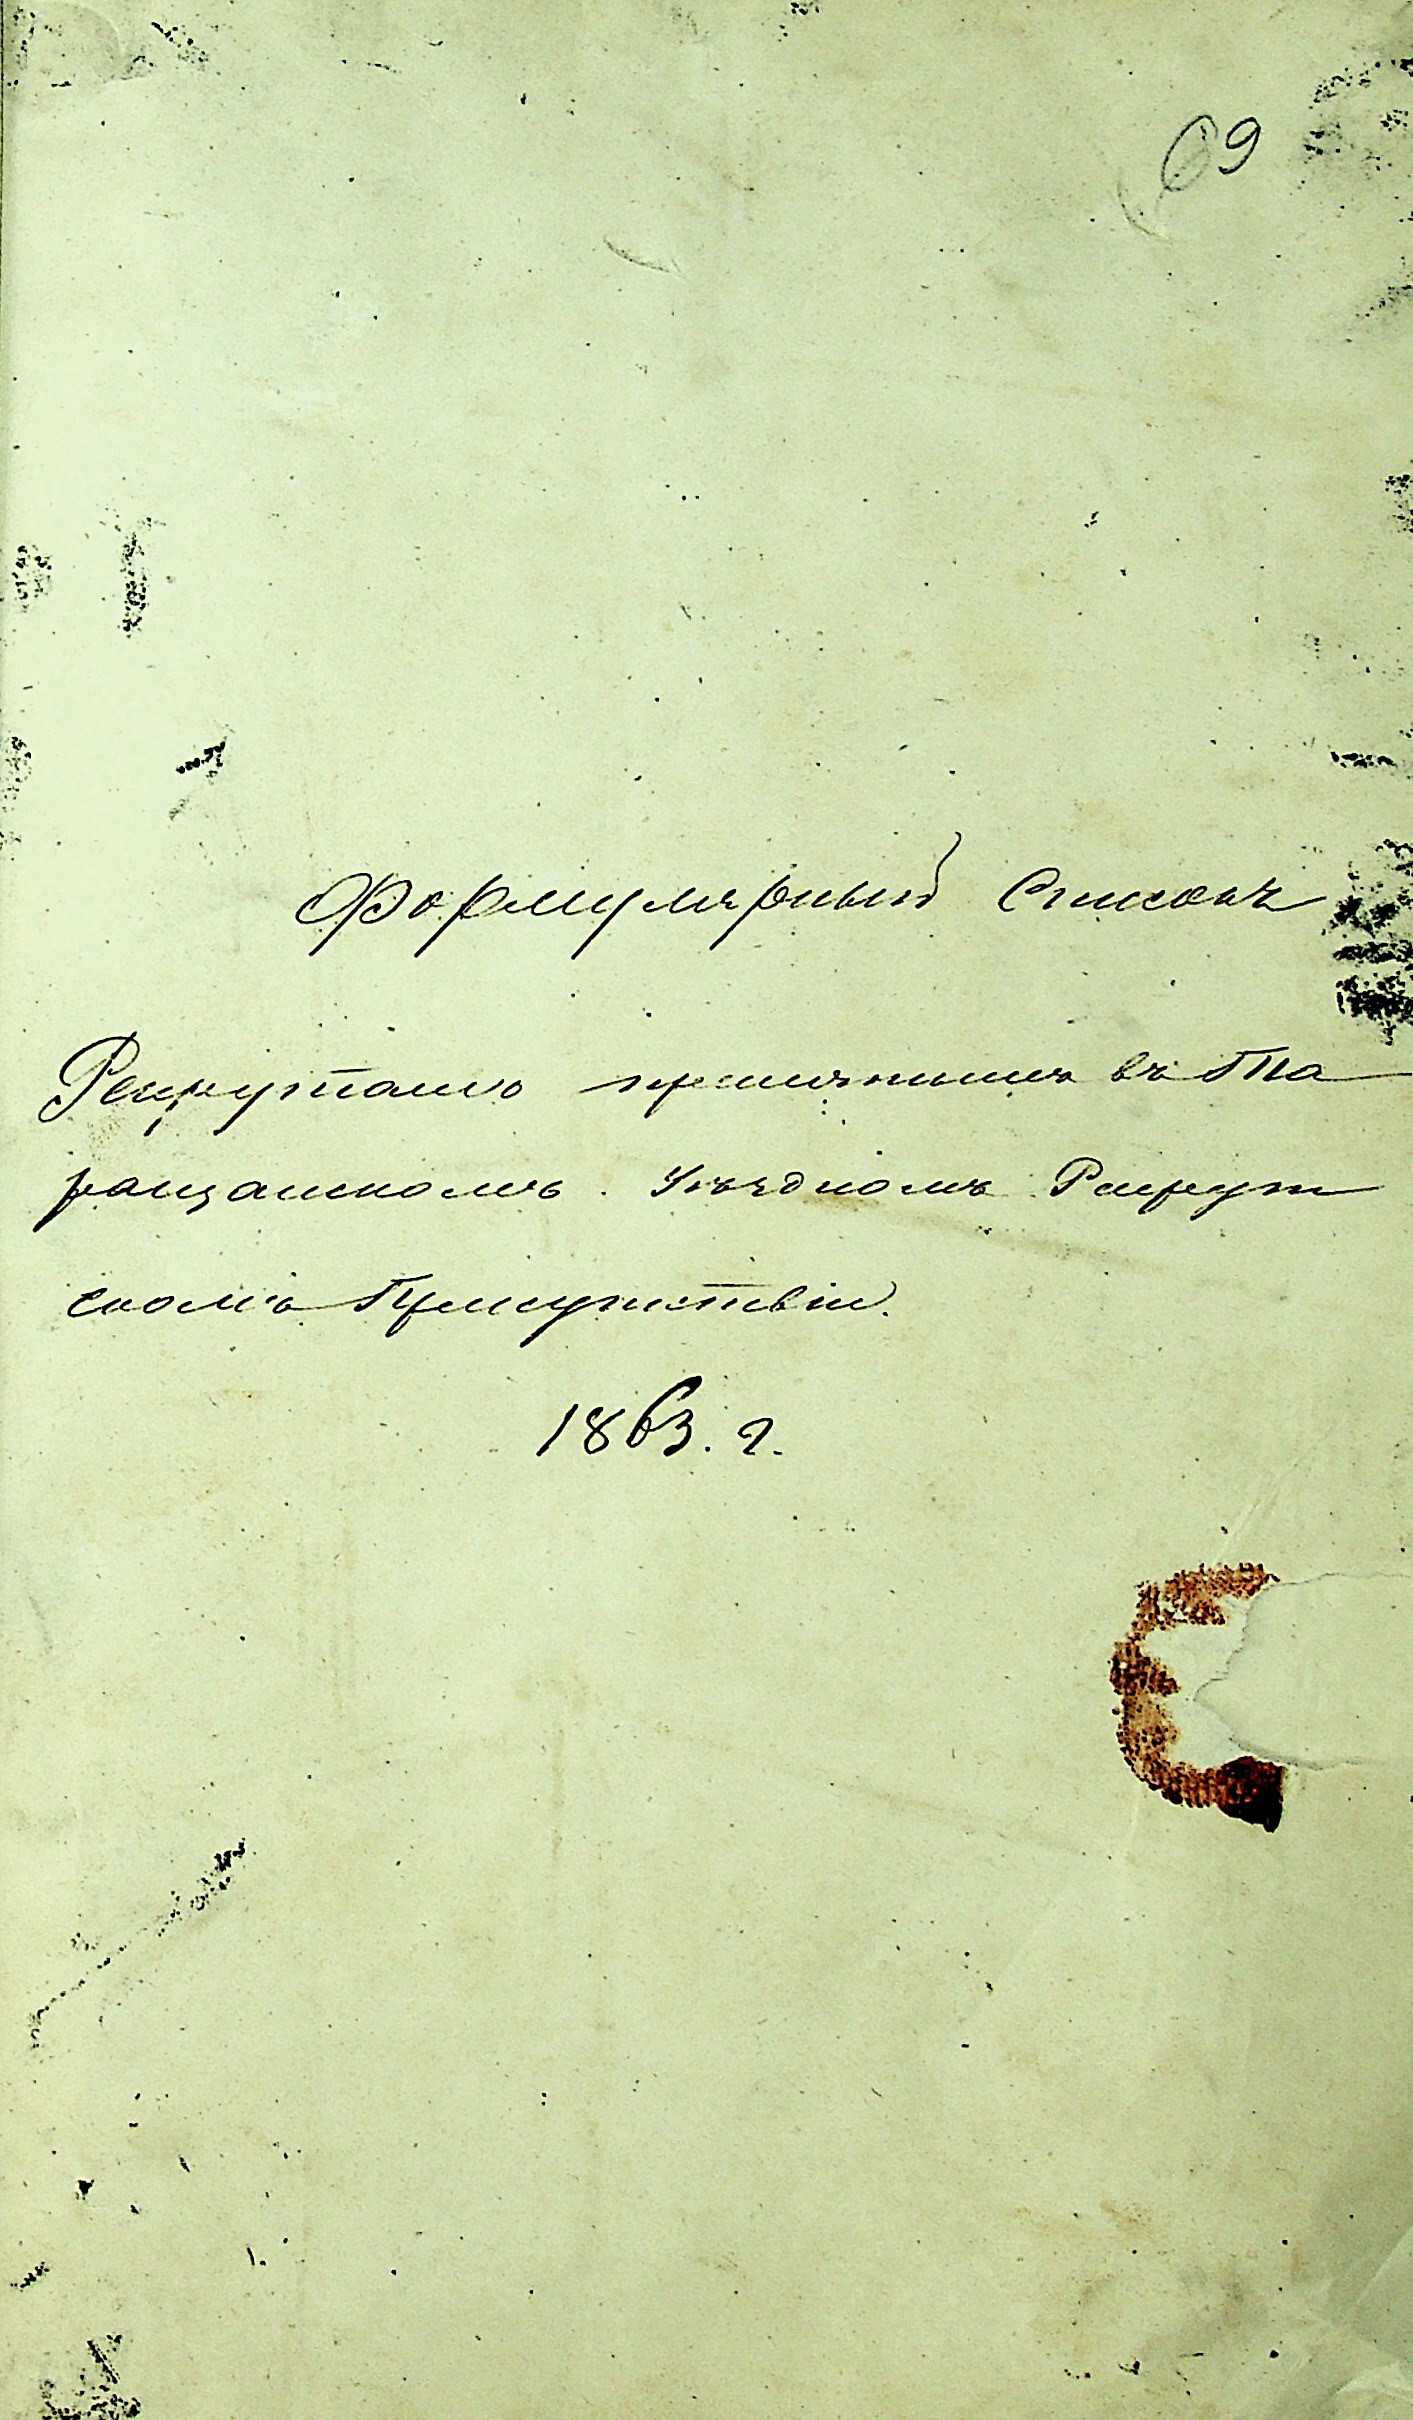 69
Формулярный Списокъ
Рекрутамъ принятымъ въ Та
ращанскомъ Уѣздномъ Рекрут
скомъ Присутствіи.
1863. г.